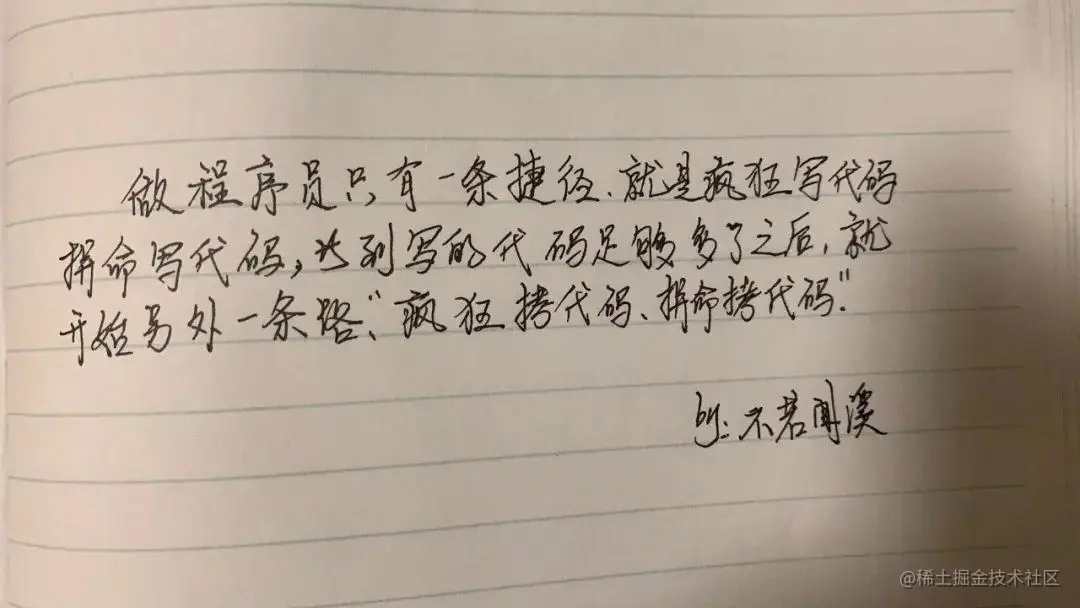 做程序员只有一条捷径、就是疯狂写代码
拼命写代码,达到写的代码足够多了之后,就
开始另外一条路、“疯狂拷代码、拼命拷代码”.
by: 不若闻溪
@稀土掘金技术社区